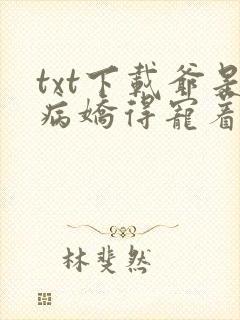 txt下載爺是
病嬌得寵着
林斐然